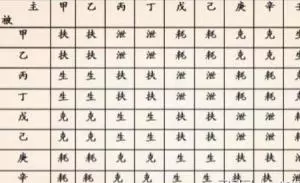 主 甲 乙 丙 丁 戊 己 庚 辛
被
甲 扶 扶 泄 泄 耗 耗 克 克
乙 扶 扶 泄 泄 耗 耗 克 克
丙 生 生 扶 扶 泄 泄 耗 耗
丁 生 生 扶 扶 泄 泄 耗 耗
戊 克 克 生 生 扶 扶 泄 泄
己 克 克 生 生 扶 扶 泄 泄
庚 耗 耗 克 克 生 生 扶 扶
辛 耗 耗 克 克 生 生